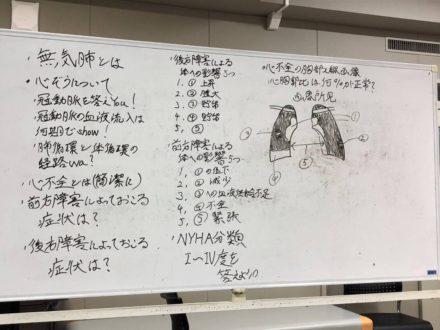 ・無気肺とは
・心ぞうについて
冠動脈を答えYou!
冠動脈の血液流入は
何期でshow!
・肺循環と体循環の
経路wa?
・心不全とは(簡潔に)
・前方障害によっておこる
症状は?
・後方障害によっておこる
症状は?
・後方障害による
体への影響5つ
1, ① 上昇
2, ②
3, ③ 貯留
4, ④ 貯留
5, ⑤
・前方障害による
体への影響5つ
1, ①の低下
2, ②減少
3, ③への血液供給不足
4, ④不全
5, ⑤緊張
・NYHA分類
I~IV度を
答えよ
・心不全の胸部X線画像
心胸郭比は何%が正常?
画像所見
①
②
③
④
⑤